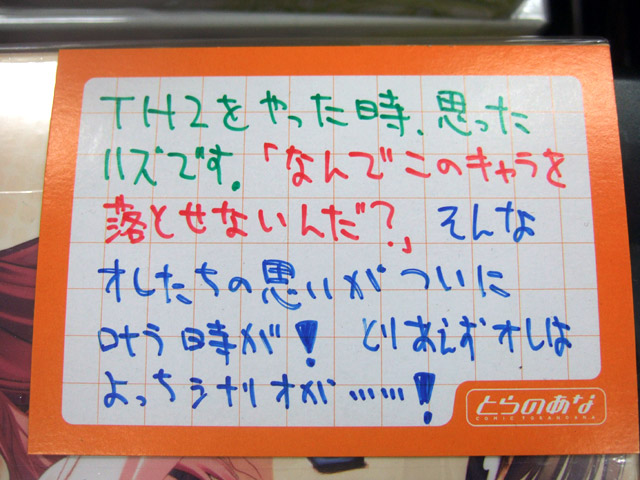 TH2をやった時、思った
ハズです。「なんでこのキャラを
落とせないんだ?」そんな
オレたちの思いがついに
叶う時が!とりあえずオレは
よっちシナリオが……!
とらのあな
COMIC TORANOANA